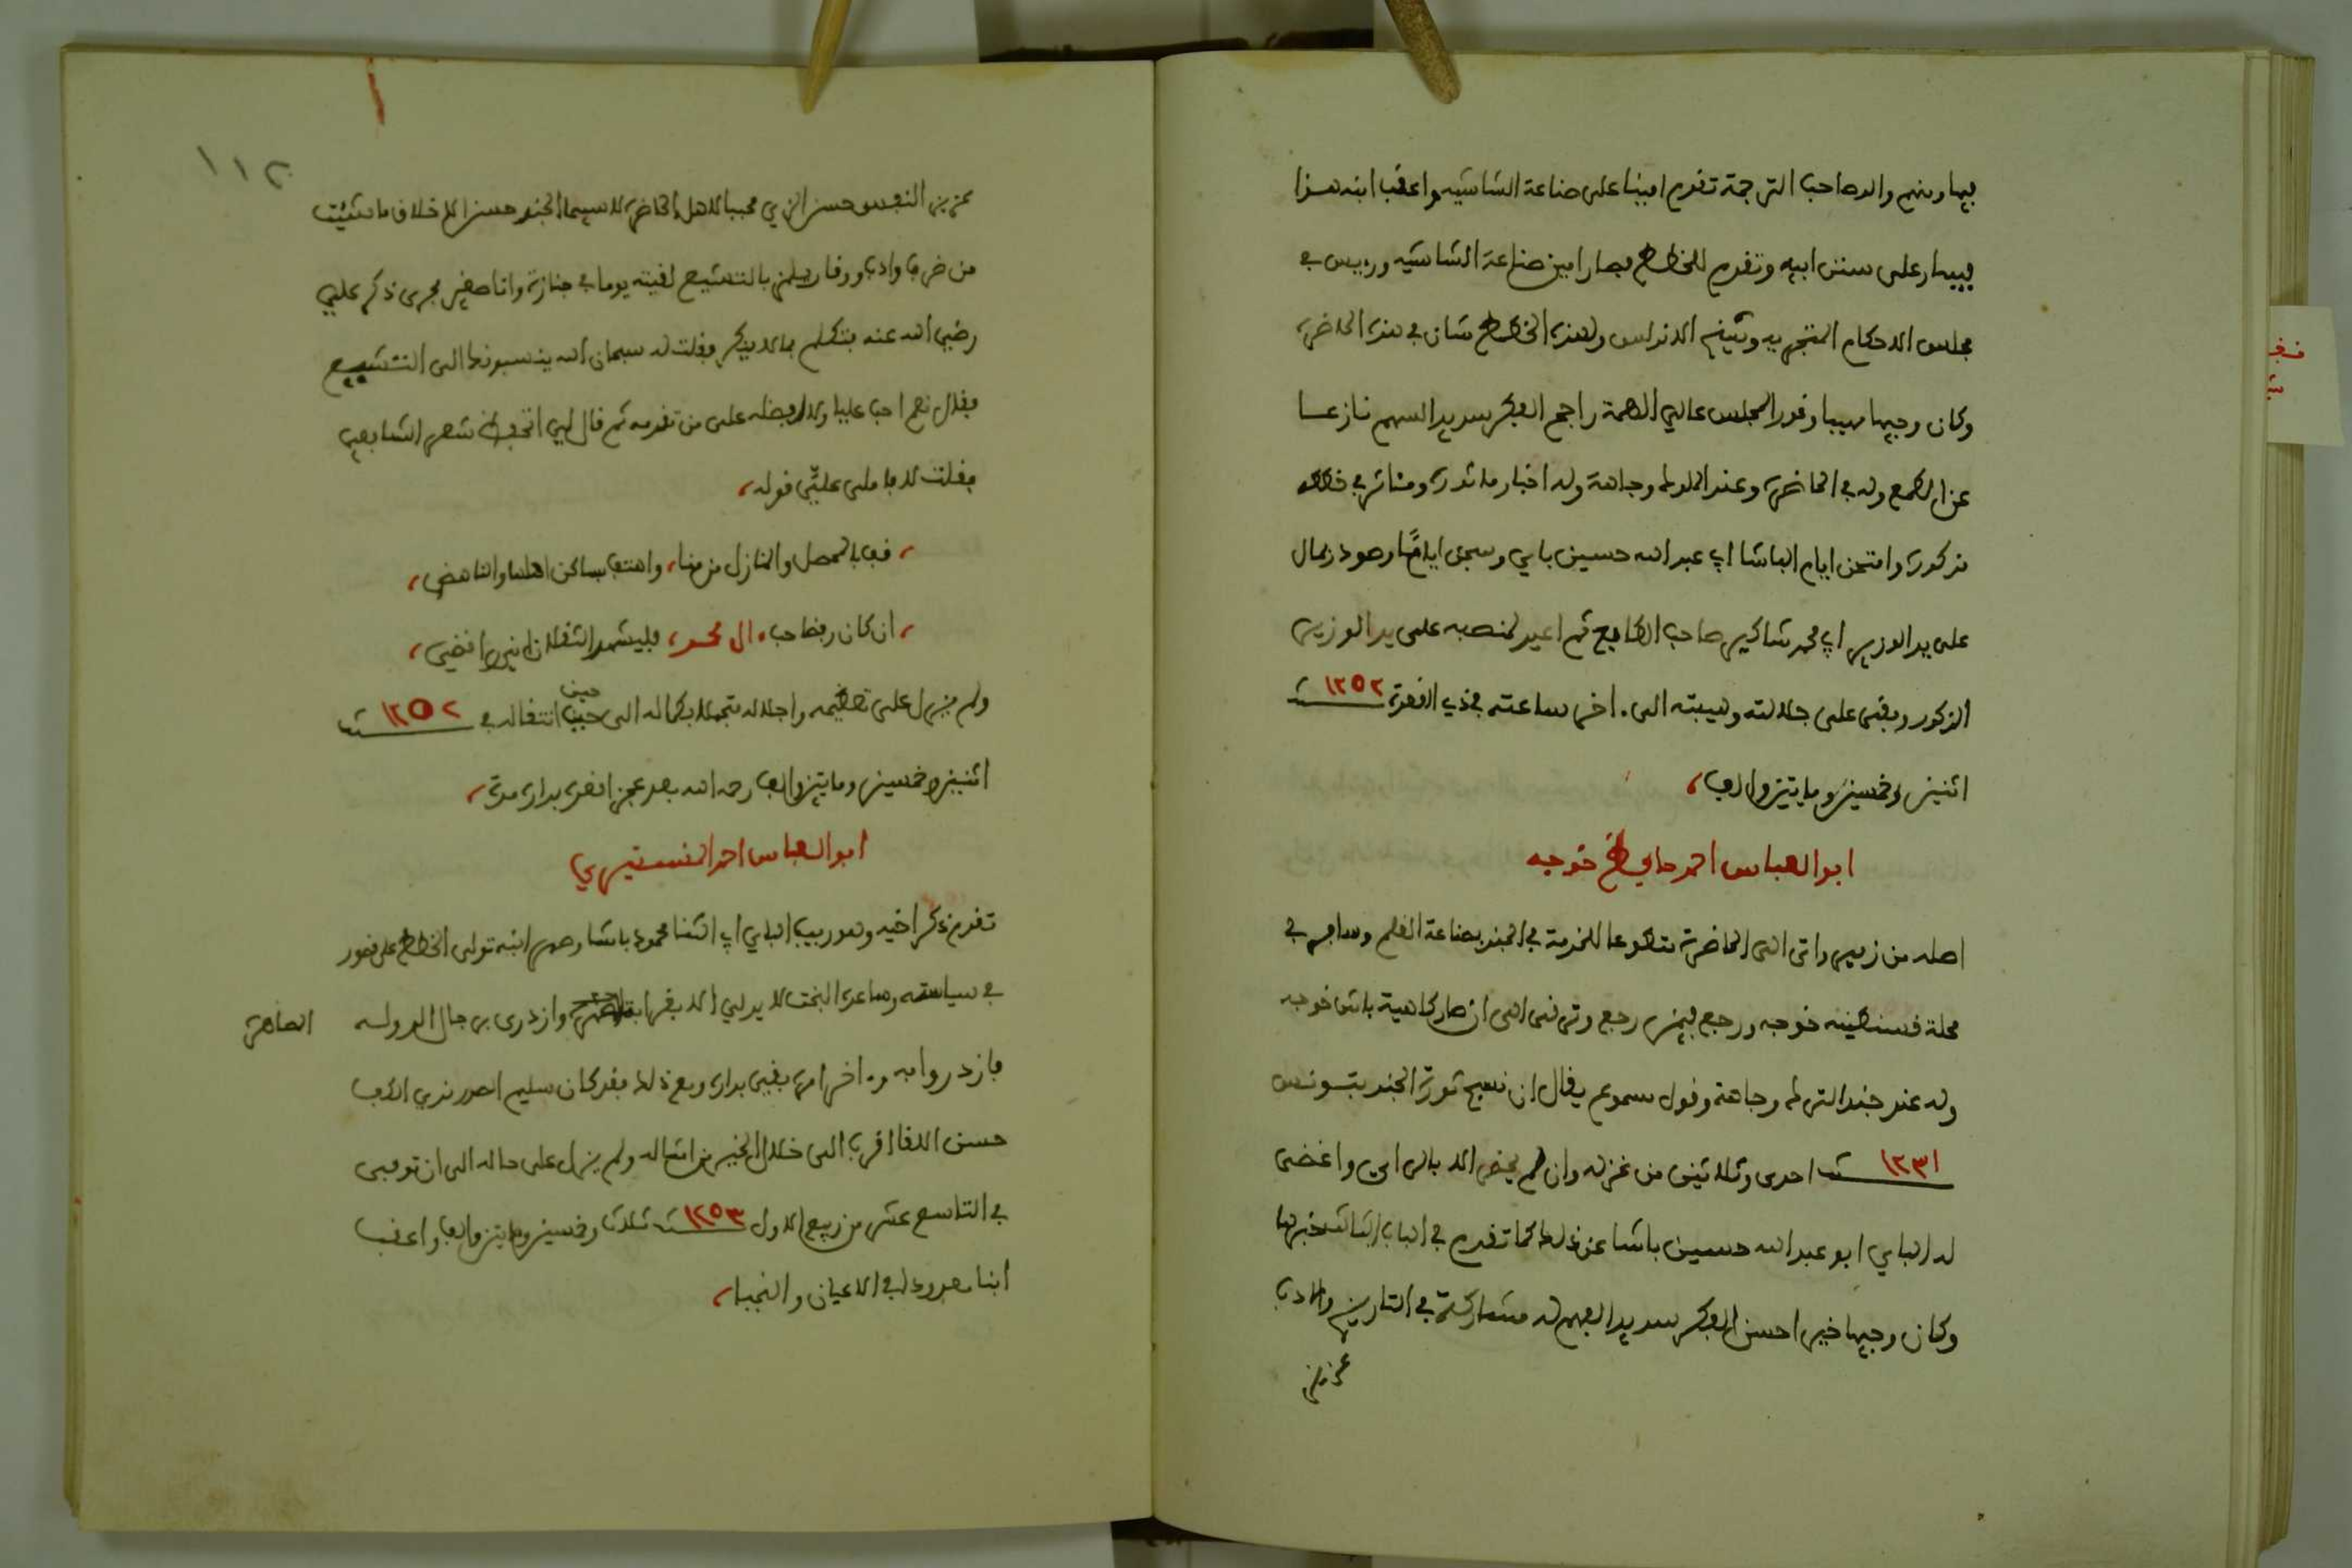 فيها ومنهم والد صاحب الترجمة تقدم امينا على صناعة الشاشيه واعقب ابنه هذا
فسار على سنن ابيه وتقدم للخطط فصار امين صناعة الشاشيه ورييس في
مجلس الاحكام المتجريه وشيخ الاندلس ولهذه الخطط شان في هذه الحاضرة
وكان وجيها مهيبا وقور المجلس عالي الهمة راجح الفكر سديد السهم نازعا
عن الطمع وله في الحاضرة وعند الملوك وجاهة وله اخبار ماثورة ومئاثر في خططه
مذكورة وامتحن ايام الباشا ابي عبد الله حسين باي وسجن اياما وصودر بمال
على يد الوزير ابي محمد شاكير صاحب الطابع ثم اعيد لمنصبه على يد الوزير
المذكور وبقى على جلالته وهيبته الى اخر ساعته في ذي القعدة سنة ١٢٥٢
اثنين وخمسين ومايتين والف،
ابو العباس احمد خوجه
اصله من ازمير واتى الى الحاضرة متطوعا للخدمة في الجند بصناعة القلم وسافر في
محلة قسنطينه خوجه ورجع فيمن رجع وترقى الى ان صار كاهية باش خوجه
وله عند جند الترك وجاهة وقول مسموع يقال ان نسج ثورة الجند بتونس
سنة ١٢٣١ احدى وثلاثين من غزله وان لم يحضر الا بالراي واغضى
له الباي ابو عبد الله حسين باشا عن ذلك كما تقدم في الباب الثالث خبرها
وكان وجيها خيرا حسن الفكر سديد الفهم له مشاركة في التاريخ والادب
عزيز
١١٢
عزيز النفس حسن الزي محببا لاهل الحاضرة لا سيما الجند حسن الاخلاق ما شئت
من ظرف وادب ووقار يلمز بالتشيع لقيته يوما في جنازة وانا صغير فجرى ذكر علي
رضي الله عنه فتكلم بما لا ينكر فقلت له سبحان الله ينسبونك الى التشيع
فقال نعم احب عليا ولا افضله على من تقدمه ثم قال لي اتحفظ شعر الشافعي
فقلت لا فاملى عليّ قوله،
، قف بالمحصب والمنازل من منا، واهتف بساكن اهلها والناهض،
، ان كان رفضا حب ال محمد، فليشهد الثقلان اني رافضي،
ولم يزل على تعظيمه واجلاله متجملا بكماله الى حين انتقاله في سنة ١٢٥٢
اثنين وخمسين ومايتين والف رحمه الله بعد عجز اقعده بداره مدة،
ابو العباس احمد المنستيري
تقدم ذكر اخيه وهو ربيب الباي ابي الثنا محمود باشا وصهر ابنه تولى الخطط على قصور
في سياسته وساعده البخت لا يدلي الا بقرابة وازدرى برجال الدوله
الصاهرة
فازدروا به و اخر امره بقي بداره ومع ذلك فقد كان سليم الصدر ندي الكف
حسن اللقا اقرب الى خلال الخير من امثاله ولم يزل على حاله الى ان توفي
في التاسع عشر من ربيع الاول سنة ١٢٥٣ ثلاث وخمسين ومايتين والف واعقب
ابنا معدودا في الاعيان والنجبا،